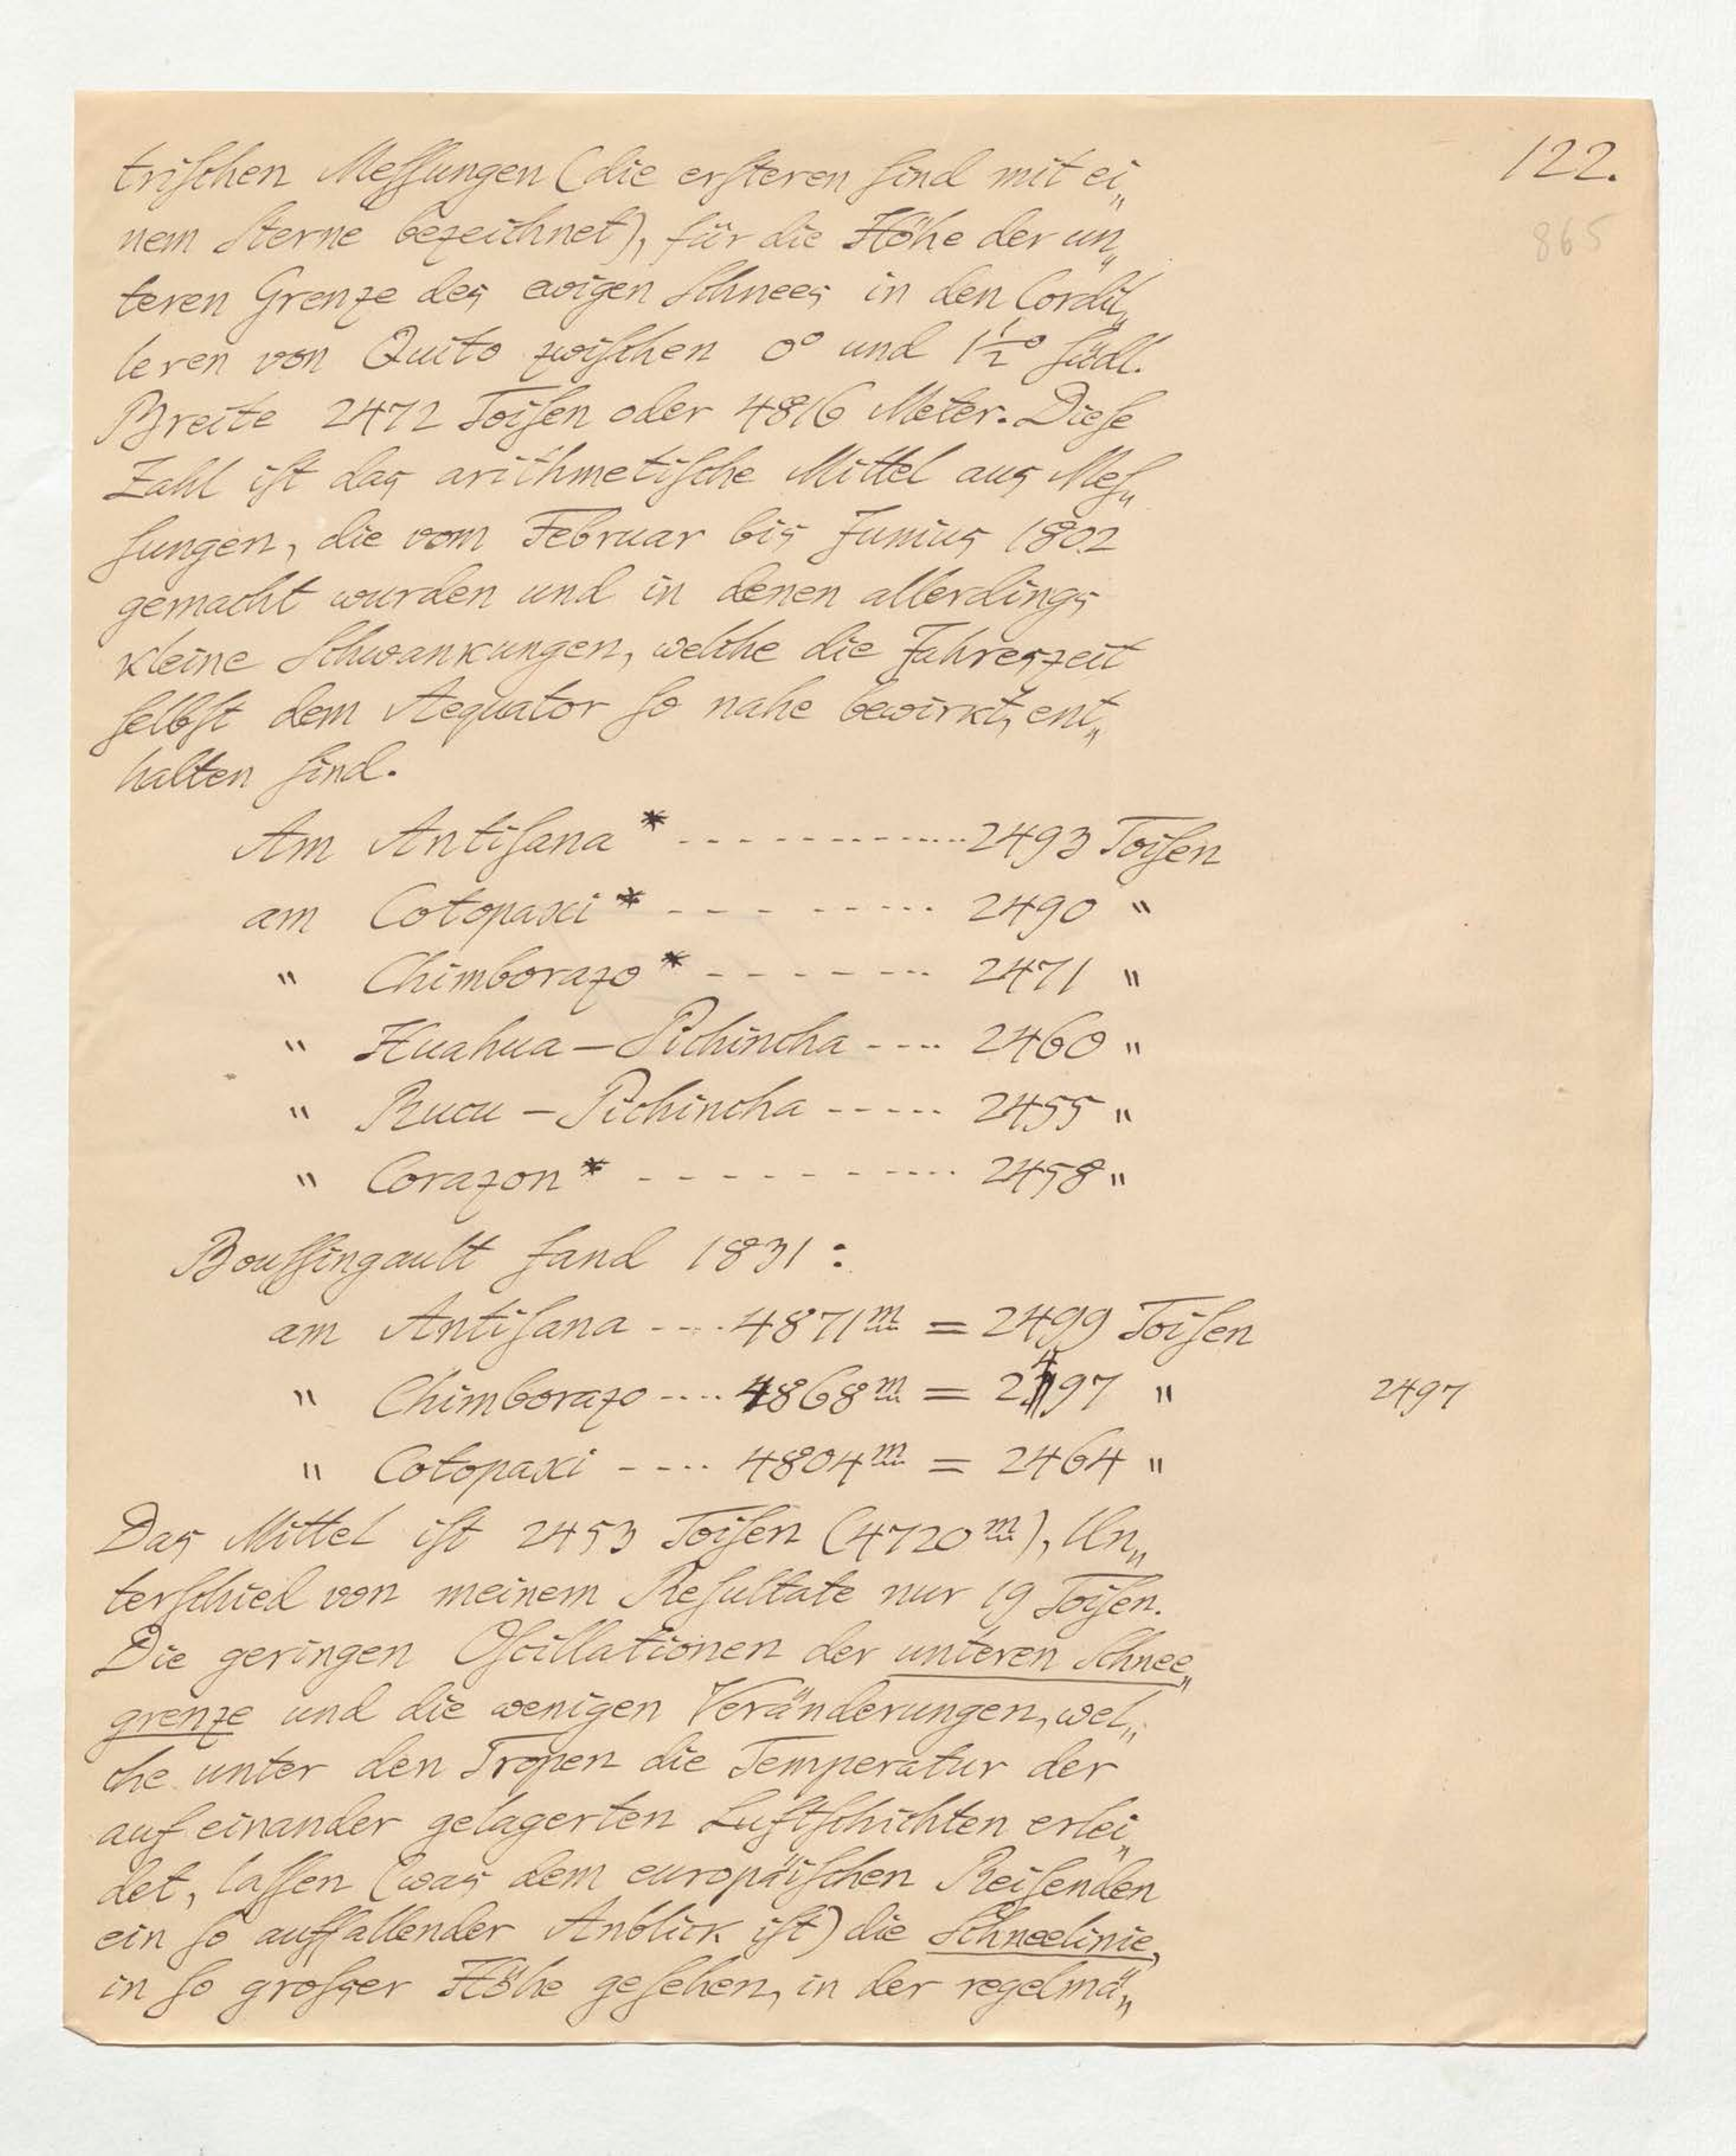 122.
865
trischen Messungen (die ersteren sind mit ei„
nem Sterne bezeichnet), für die Höhe der un„
teren Grenze des ewigen Schnees in den Cordil„
leren von Quito zwischen 0° und 1½° südl.
Breite 2472 Toisen oder 4816 Meter. Diese
Zahl ist das arithmetische Mittel aus Mes„
sungen, die vom Februar bis Junius 1802
gemacht wurden und in denen allerdings
kleine Schwankungen, welche die Jahreszeit
selbst dem Aequator so nahe bewirkt, ent„
halten sind.
Am Antisana * - - - - - - - - - - - - 2493 Toisen
am Cotopaxi * - - - - - - - - 2490 "
" Chimborazo * - - - - - - - - 2471 "
" Huahua – Pichincha - - - - 2460 "
" Rucu – Pichincha - - - - - 2455 "
" Corazon * - - - - - - - - - - 2458 "
Boussingault fand 1831 :
am Antisana - - - - 4871m = 2499 Toisen
" Chimborazo - - - - 4868m = 2497 " 2497
" Cotopaxi - - - - 4804m = 2464 "
Das Mittel ist 2453 Toisen (4720m), Un„
terschied von meinem Resultate nur 19 Toisen.
Die geringen Oscillationen der unteren Schnee„
grenze und die wenigen Veränderungen, wel„
che unter den Tropen die Temperatur der
auf einander gelagerten Luftschichten erlei„
det, lassen (was dem europäischen Reisenden
ein so auffallender Anblick ist) die Schneelinie,
in so grosser Höhe gesehen, in der regelmä„